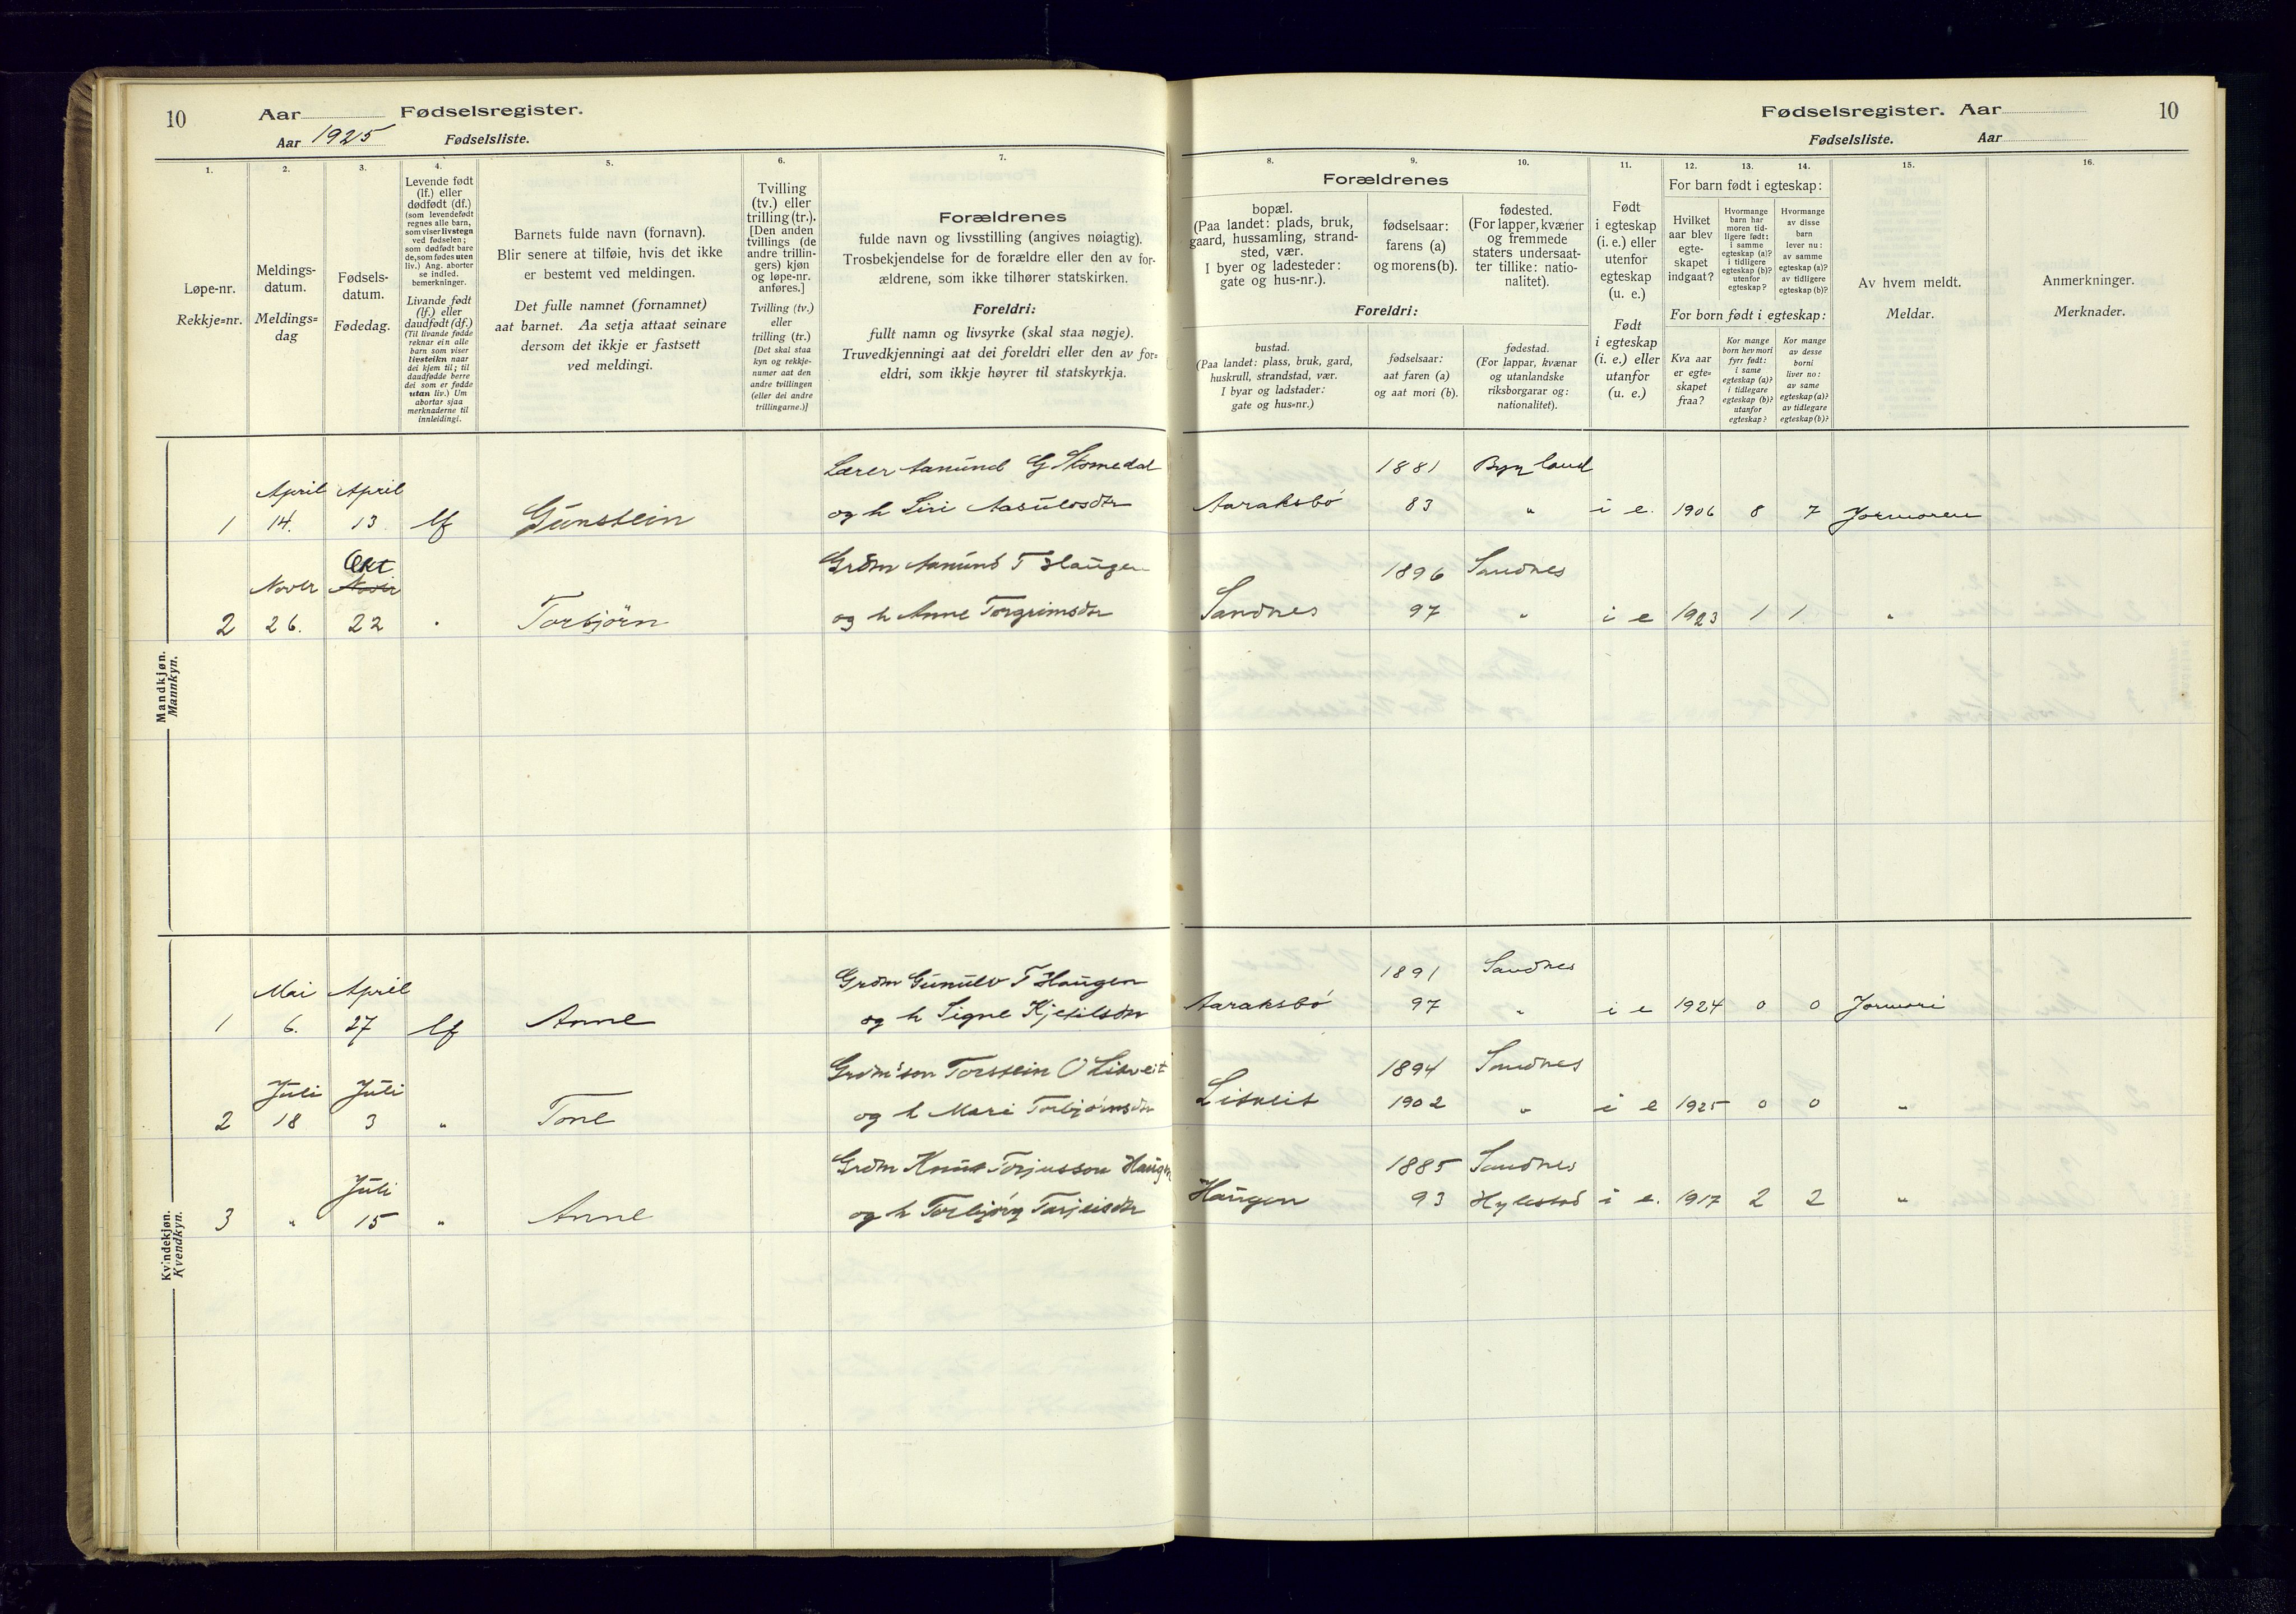 10
Aar
Fødselsregister.
Aar 1925
Fødselsliste.
1.
Løpe-nr.
Rekkje=nr.
2.
Meldings-
datum.
Meldings=
dag
3.
Fødsels-
datum.
Fødedag.
4.
Levende født
(lf.) eller
dødfødt (df.)
(som levendefødt
regnes alle barn,
som viser livstegn
ved fødselen;
som dødfødt bare
de, som fødes uten
liv.) Ang. aborter
se indled.
bemerkninger.
Livande født
(lf.) eller
daudfødt (df.)
(Til livande fødde
reknar ein alle
barn som viser
livsteikn naar
dei kjem til; til
daudfødde berre
dei som er fødde
utan liv.) Um
abortar sjaa
merknaderne til
innleidingi.
5.
Barnets fulde navn (fornavn).
Blir senere at tilføie, hvis det ikke
er bestemt ved meldingen.
Det fulle namnet (fornamnet)
aat barnet. Aa setja attaat seinare
dersom det ikkje er fastsett
ved meldingi.
6.
Tvilling
(tv.) eller
trilling (tr.).
[Den anden
tvillings (de
andre trillin-
gers) kjøn
og løpe-nr.
anføres.]
Tvilling (tv.)
eller
trilling (tr.)
[Det skal staa
kyn og rekkje-
numer aat den
andre tvillingen
(eller dei andre
trillingarne.)]
7.
Forældrenes
fulde navn og livsstilling (angives nøiagtig).
Trosbekjendelse for de forældre eller den av for-
ældrene, som ikke tilhører statskirken.
Foreldri:
fullt namn og livsyrke (skal staa nøgje).
Truvedkjenningi aat dei foreldri eller den av for=
eldri, som ikkje høyrer til statskyrkja.
Mandkjøn.
Mannkyn.
Lærer Aamund G Stomedal
April April
og h Siri Aasulvsdtr
1 14. 13 lf Gunstein
Okt
Grdm Aamund T Haugen
Novbr Novbr
og h Anne Torgrimsdtr
2 26. 22 " Torbjörn
Kvindekjøn.
Kvendkyn.
Grdm Gunulv T Haugen
Mai April
og h Signe Kjetilsdtr
1 6. 27 lf Anne
Grdm'son Torstein O Litveit
Juli Juli
og h Mari Torbjörnsdtr
2 18 3 " Tone
Grdm Knut Torjusson Haugen
Juli
og h Torbjörg Tarjeisdtr
3 " 15 " Anne
Fødselsregister. Aar
10
Fødselsliste.
Aar
8.
9.
10.
Forældrenes
bopæl.
(Paa landet: plads, bruk,
gaard, hussamling, strand-
sted, vær.
I byer og ladesteder:
gate og hus-nr.).
fødselsaar:
farens (a)
og morens (b).
fødested.
(For lapper, kvæner
og fremmede
staters undersaat-
ter tillike: natio-
nalitet).
Foreldri:
bustad.
(Paa landet: plass, bruk, gard,
huskrull, strandstad, vær.
I byar og ladstader:
gate og hus=nr.)
fødselsaar:
aat faren (a)
og aat mori (b).
fødestad.
(For lappar, kvænar
og utanlandske
riksborgarar og:
nationalitet).
11.
Født
i egteskap
(i. e.) eller
utenfor
egteskap
(u. e.)
Født
i egteskap
(i. e.) eller
utanfor
(u. e.)
12.
13.
14.
For barn født i egteskap:
Hvilket
aar blev
egte-
skapet
indgaat?
Hvormange
barn har
moren tid-
ligere født:
i samme
egteskap (a)?
i tidligere
egteskap (b)?
utenfor
egteskap?
Hvormange
av disse
barn
lever nu:
av samme
egteskap (a)?
av tidligere
egteskap (b)?
For born født i egteskap:
Kva aar
er egte=
skapet
fraa?
Kor mange
born hev mori
fyrr født:
i same
egteskap (a)?
i tidlegare
egteskap (b)?
utanfor
egteskap?
Kor mange
av desse
borni
liver no:
av same
egteskap (a)?
av tidlegare
egteskap (b)?
15.
Av hvem meldt.
Meldar.
16.
Anmerkninger.
Merknader.
1881 Bygland
Aaraksbö 83 " i e. 1906 8 7 Jormoren
1896 Sandnes
Sandnes 97 " i e 1923 1 1 "
1891 Sandnes
Aaraksbö 97 " i e 1924 0 0 Jormori
1894 Sandnes
Litveit 1902 " i e 1925 0 0 "
1885 Sandnes
Haugen 93 Hylestad i e. 1917 2 2 "